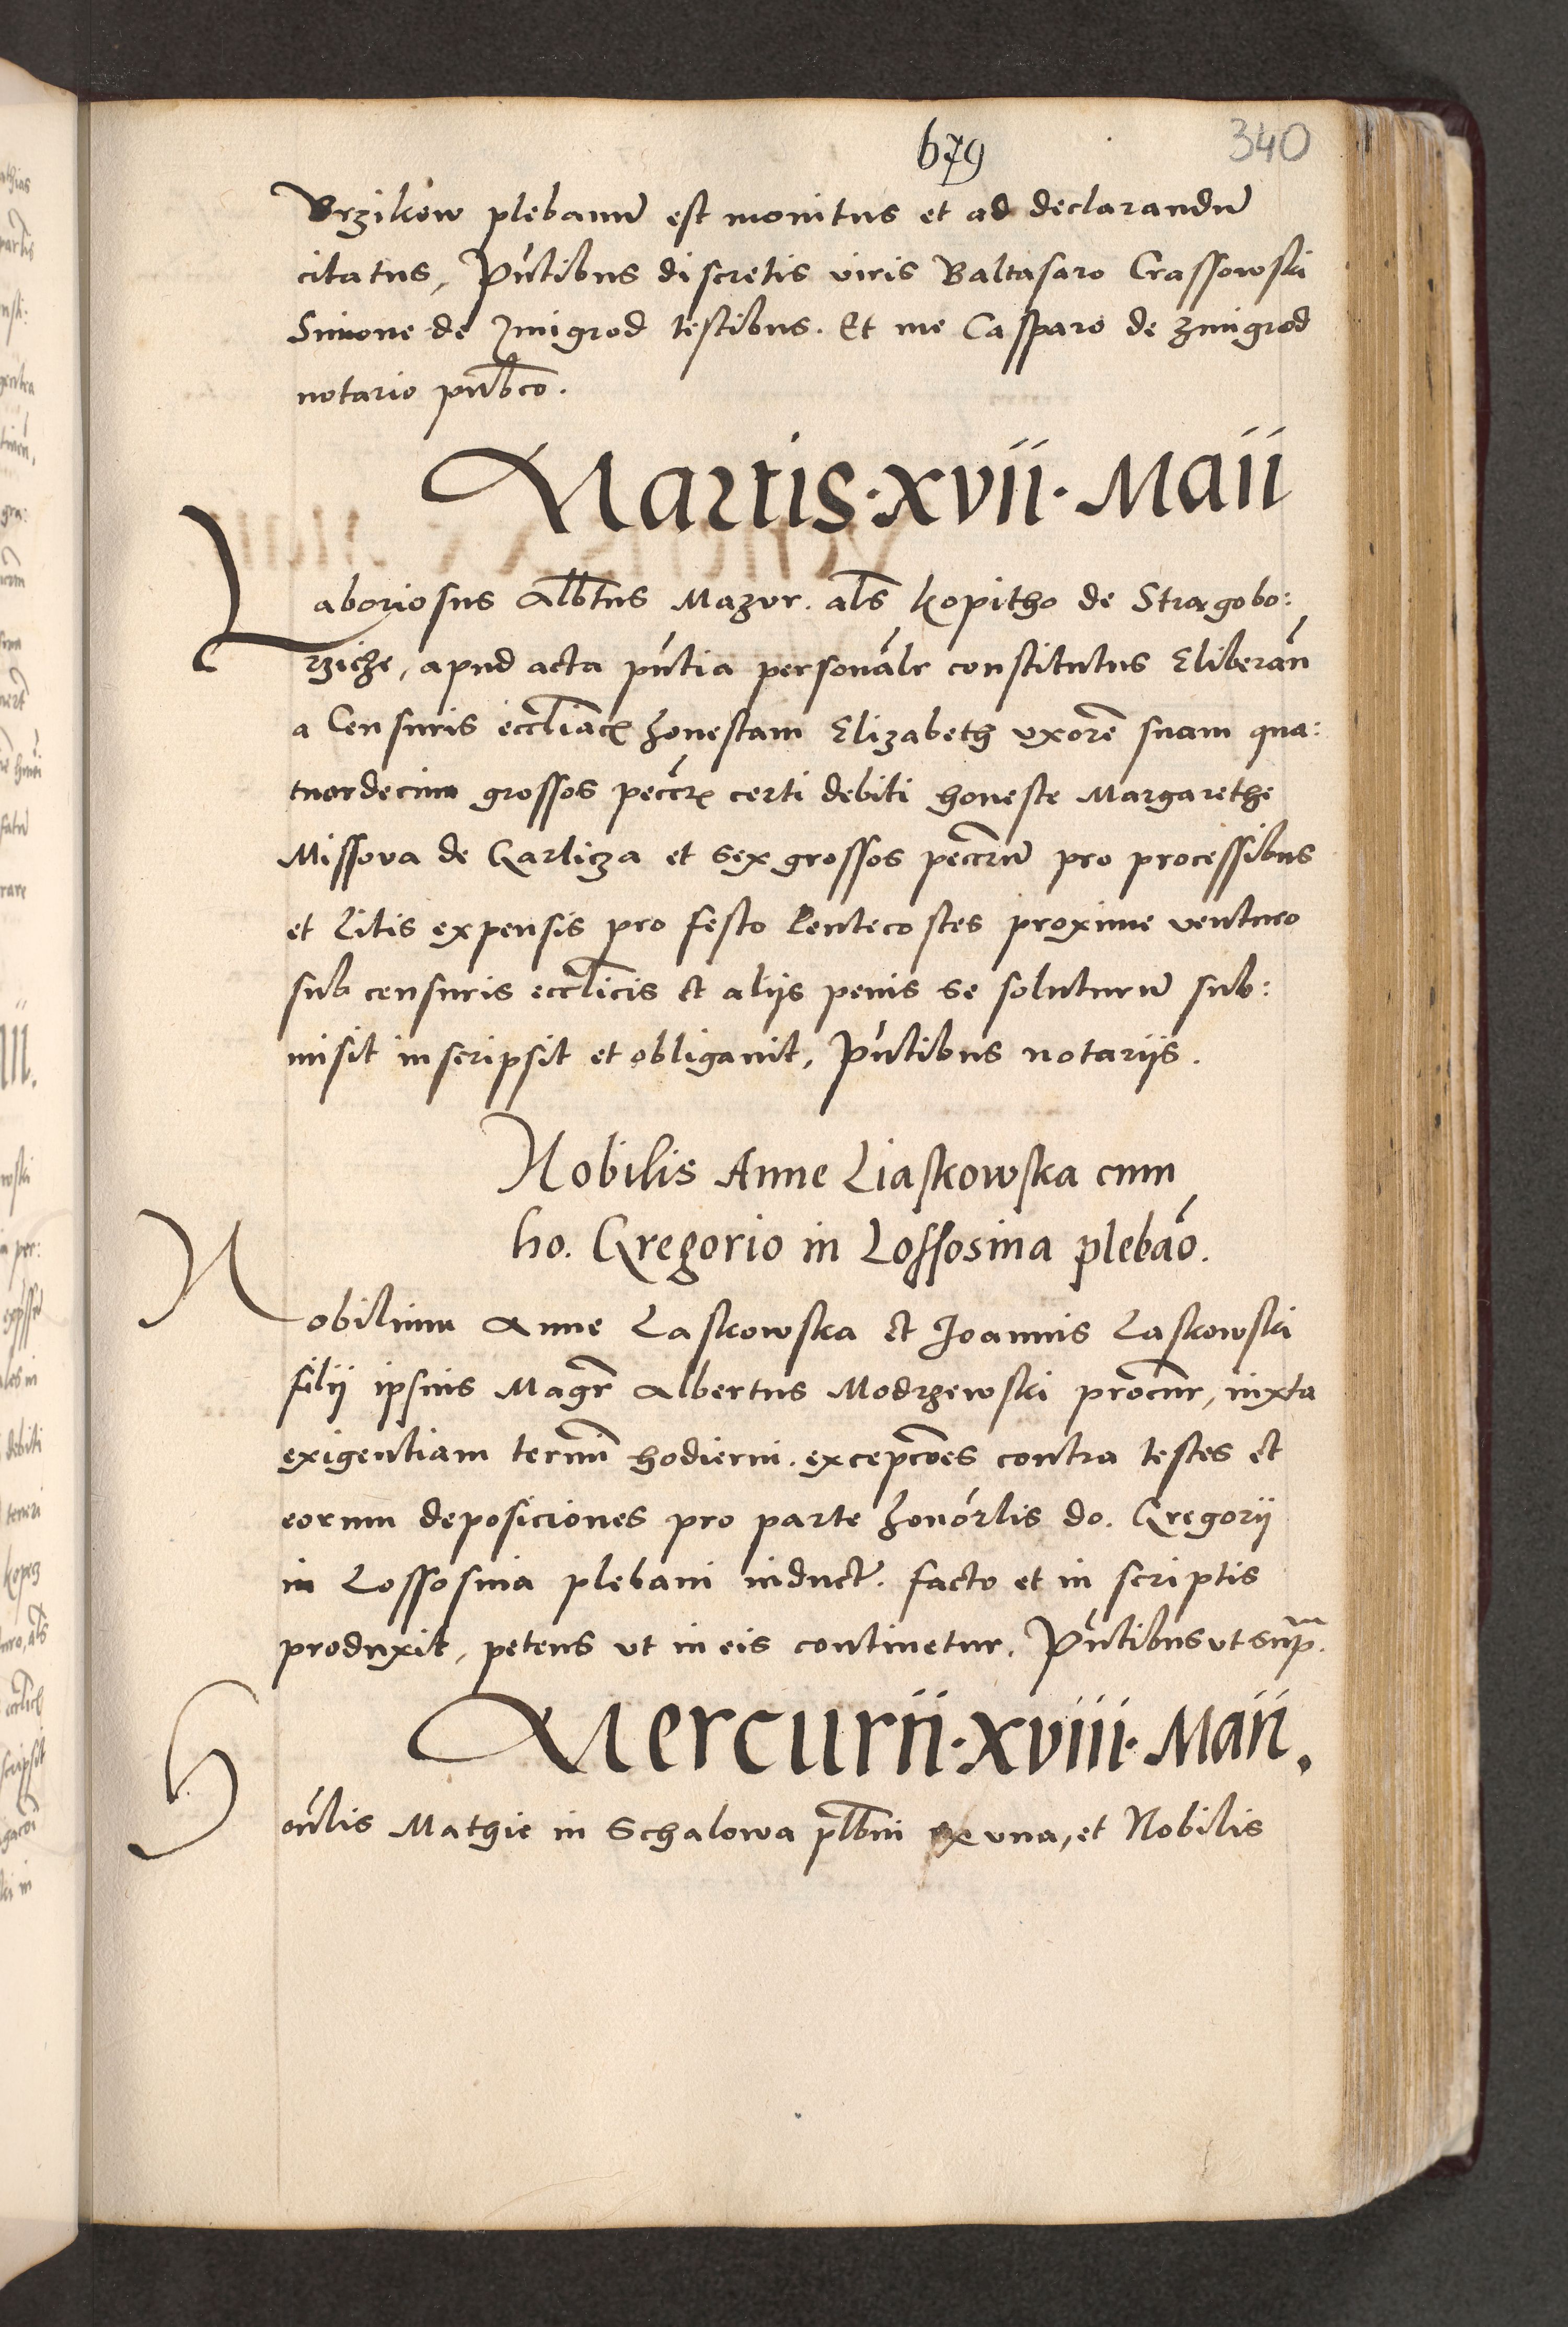 679
340
Brzikow plebanū est monitus et ad declarandū
citatus, Pn̄tibus discretis viris Baltasaro Crassowski
Simone de Zmigrod testibus. Et me Casparo de Zmigrod
notario pub̄co.
Martis · xvii · Maii
Laboriosus Alb̄tus Mazur. al̄s Kopitho de Stragobo:
rziche, apud acta pn̄tia personāl̄r constitutus Eliberan̄
a Censuris eccl̄iac̄ȝ honestam Elizabeth vxorē suam qua:
tuordecim grossos pecc̄rȝ certi debiti honeste Margarethe
Missova de Garlicza et sex grossos pecc̄rū pro processibus
et Litis expensis pro festo Pentecostes proxime venturo
sub censuris eccl̄icis et aliis penis se soluturū sub:
misit inscripsit et obligauit, Pn̄tibus notariis.
Nobilis Anne Liaskowska cum
ho. Gregorio in Lossosina plebāo.
Nobilium Anne Laskowska et Joannis Laskowski
filii ipsius Magr̄ Albertus Modrzewski procūr, iuxta
exigentiam termīi hodierni. excepc̄oēs contra testes et
eorum deposiciones pro parte honōrlis do. Gregorii
in Lossosina plebani induct̄. facto et in scriptis
produxit, petens vt in eis continetur. Pn̄tibus vt sup̄.
Mercurii · xviii · Maii.
Hon̄lis Mathie in Schalowa plb̄ni ex vna, et Nobilis